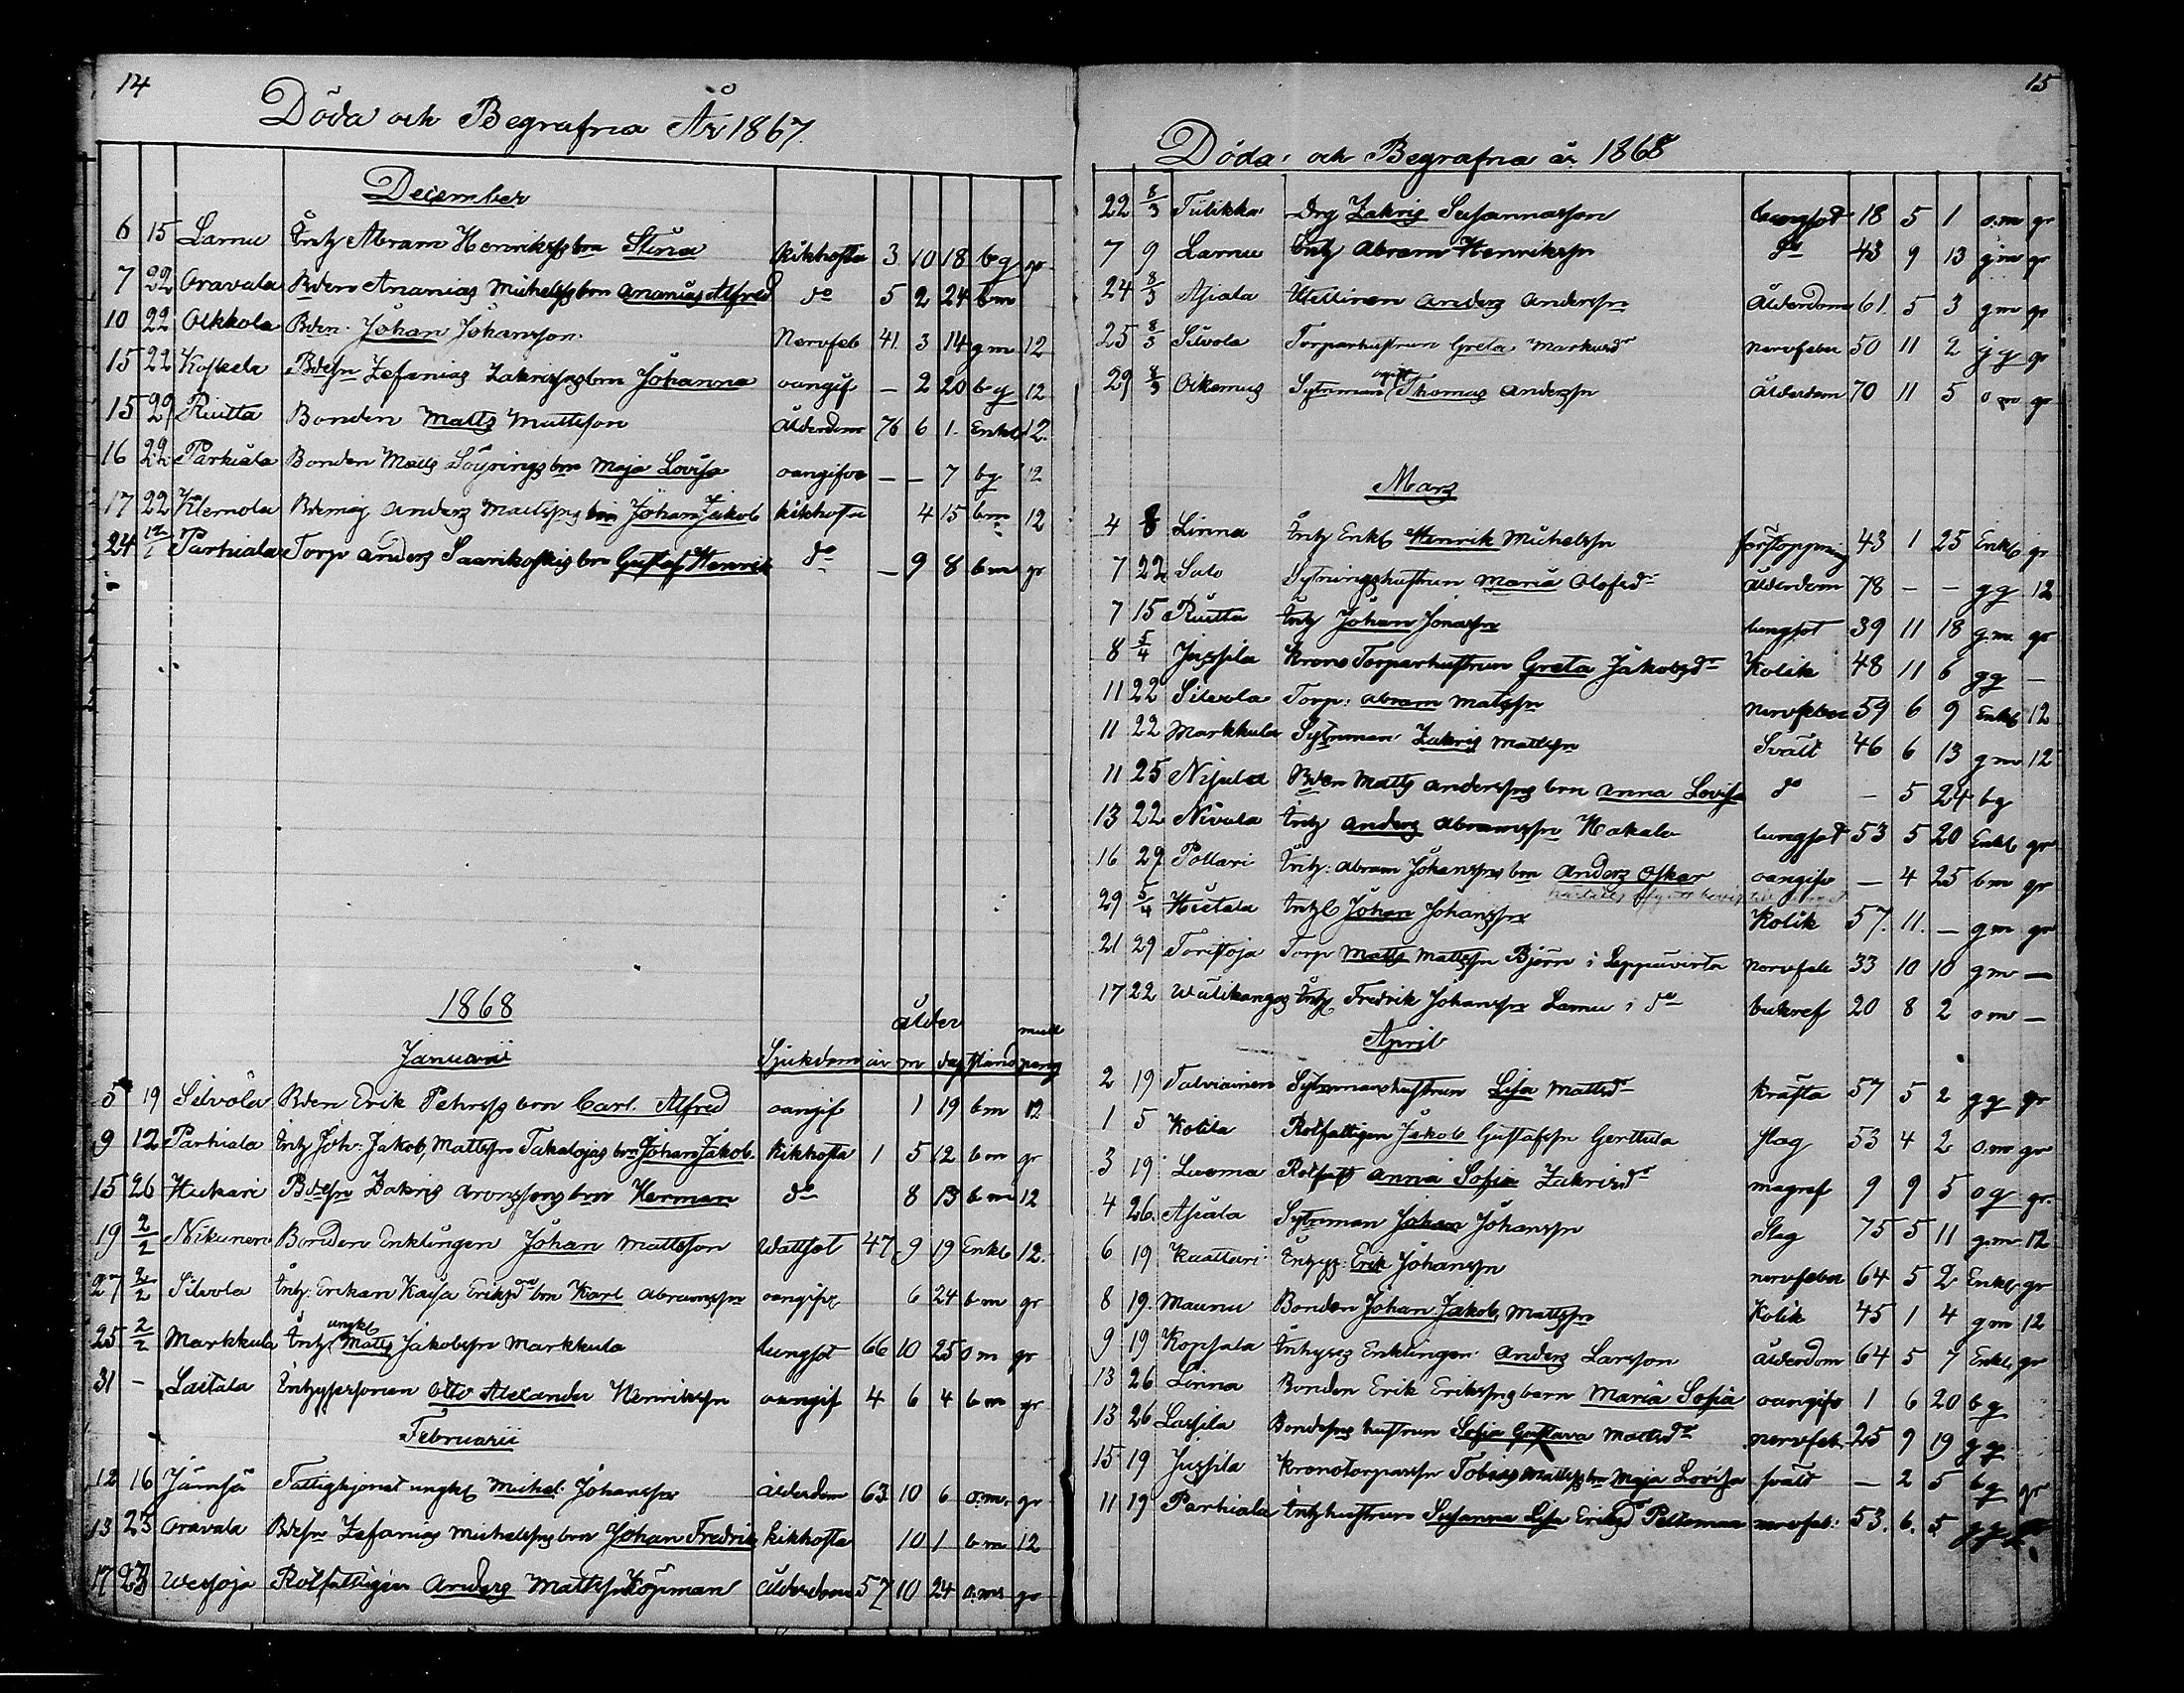 14
Döda och Begrafna År 1867.
December
6 15 Lamu Inhz Abram Henrikssns brn Stina kikhosta 3 10 18 bg gr
7 22 Oravala Bdens Ananias Michelss brn Ananias Alfred do 5 2 24 bm
10 22 Olkkola Bden Johan Johansson Nervfeb 41. 3 14 gm 12
15 22 Koskela Bdesn Zefanias Zakrissns brn Johanna oangif – 2 20 bg 12
15 29 Ruitta Bonden Matts Mattsson Ålderdom 76 6 1. Enkl 12.
16 22 Parhiala Bonden Matts brn Maja Lovisa oangifve – – 7 bg 12
17 22 Klemola Bdemåg Anders Mattssns brn Johan Jakob kikhosta 4 15 bm 12
24 12/1 Parhiala Torp Anders Saarikoskis brn Gustaf Henrik do – 9 8 bm gr
1868
ålder mull
Januarii Sjukdom år m dag stånd peng
5 19 Silvola Bden Erik Petrss brn Carl Alfred oangif 1 19 bm 12
9 12 Parhiala Inhz Joh: Jakob, Mattssns Takalojas brn Johan Jakob kikhosta 1 5 12 bm gr
15 26 Hukari Bdesn Zakris Aronssons brn Herman do 8 13 bm 12
19 2/2 Nikunen Bonden Enklingen Johan Mattsson Wattsot 47 9 19 Enkl 12.
27 2/2 Silvola Inhz: Enkan Kaisa Eriksdr brn Karl Abramssn oangifv 6 24 bm gr
ungkl
25 2/2 Markkula Inhz Matts Jakobssn Markkula lungsot 66 10 25 om gr
31 – Laitala Inhyspersonen Otto Alexander Henrikssn oangif 4 6 4 bm gr
Februarii
12 16 Jämsä Fattighjonet ungkl Michel Johanssn ålderdom 63 10 6 o.m. gr
13 23 Oravala Bdesn Zefanias Michelssns brn Johan Fredrik kikhosta 10 1 bm 12
17 23 Wesioja Rotfattigen Anders Mattssn Köjman ålderdom 57 10 24 o.m gr
15
Döda och Begrafna år 1868
22 8/3 Tulikka Drg Zakris Susannasson lungsot 18 5 1 o.m gr
7 9 Lamu Inhz Abram Henrikssn do 43 9 13 gm gr
24 8/3 Asiala Anders Anderssn Ålderdom 61. 5 3 gm gr
25 8/3 Silvola Torparhustrun Greta Markusdr nervfeber 50 11 2 gg gr
29 8/3 Oikemus Sytnman Thomas Anderssn Ålderdom 70 11 5 om gr
Mars
4 8 Linna Inhz Enkl Henrik Michelssn förstoppning 43 1 25 Enkl gr
7 22 Salo Sytningshustrun Maria Olofsdr Ålderdom 78 – – gg 12
7 15 Ruitta Inhz Johan Jonassn lungsot 39 11 18 gm gr
8 5/4 Jussila Krono Torparhustrun Greta Jakobsdr Kolik 48 11 6 gg –
11 22 Silvola Torp: Abram Matssn nervfeber 59 6 9 Enkl 12
11 22 Markkula Sytnman Zakris Mattssn Svält 46 6 13 gm 12
11 25 Nisula Bden Matts Anderssns brn Anna Lovisa do – 5 24 bg
13 22 Nivala Inhz Anders Abramssn Hakala lungsot 53 5 20 Enkl gr
16 29 Pollari Inhz: Abram Johanssns brn Anders Oskar oangifv – 4 25 bm gr
29 5/4 Hietala Inhz Johan Johanssn Kolik 57. 11. – gm gr
21 29 Torp Matts Mattssn Björn i Leppävirta nervfeb 33 10 10 gm –
17 22 Wäliкangas Inhz Fredrik Johanssn Lamu i do bukref 20 8 2 om –
April
2 19 Talviainen Sytnmanshustrun Lisa Mattsdr kräfta 57 5 2 gg gr
1 5 Kotila Rotfattigen Jakob Gustafssn Gerttula slag 53 4 2 o.m gr
3 19 Luoma Rotfatt Anna Sofia Zakrisdr magref 9 9 5 og gr.
4 26. Asiala Sytnman Johan Johanssn Slag 75 5 11 g.m 12
6 19 Inhysg: Erik Johanssn nervfeber 64 5 2 Enkl gr
8 19. Maunu Bonden Johan Jakob, Mattssn Kolik 45 1 4 gm 12
9 19 Kopsala Inhyses Enklingen Anders Larsson Ålderdom 64 5 7 Enkl gr
13 26 Linna Bonden Erik Erikssns barn Maria Sofia oangifv 1 6 20 bg
13 26 Lassila Bondesns hustrun Sofia Gustava Mattsdr nervfeb 25 9 19 gg
15 19 Jussila Kronotorparesn Tobias Mattss brn Maja Lovisa svält – 2 5 bg gr
11 19 Parhiala Inhzhustrun Susanna Lisa Eriksdr Peltomaa nervfeb: 53. 6. 5 gg